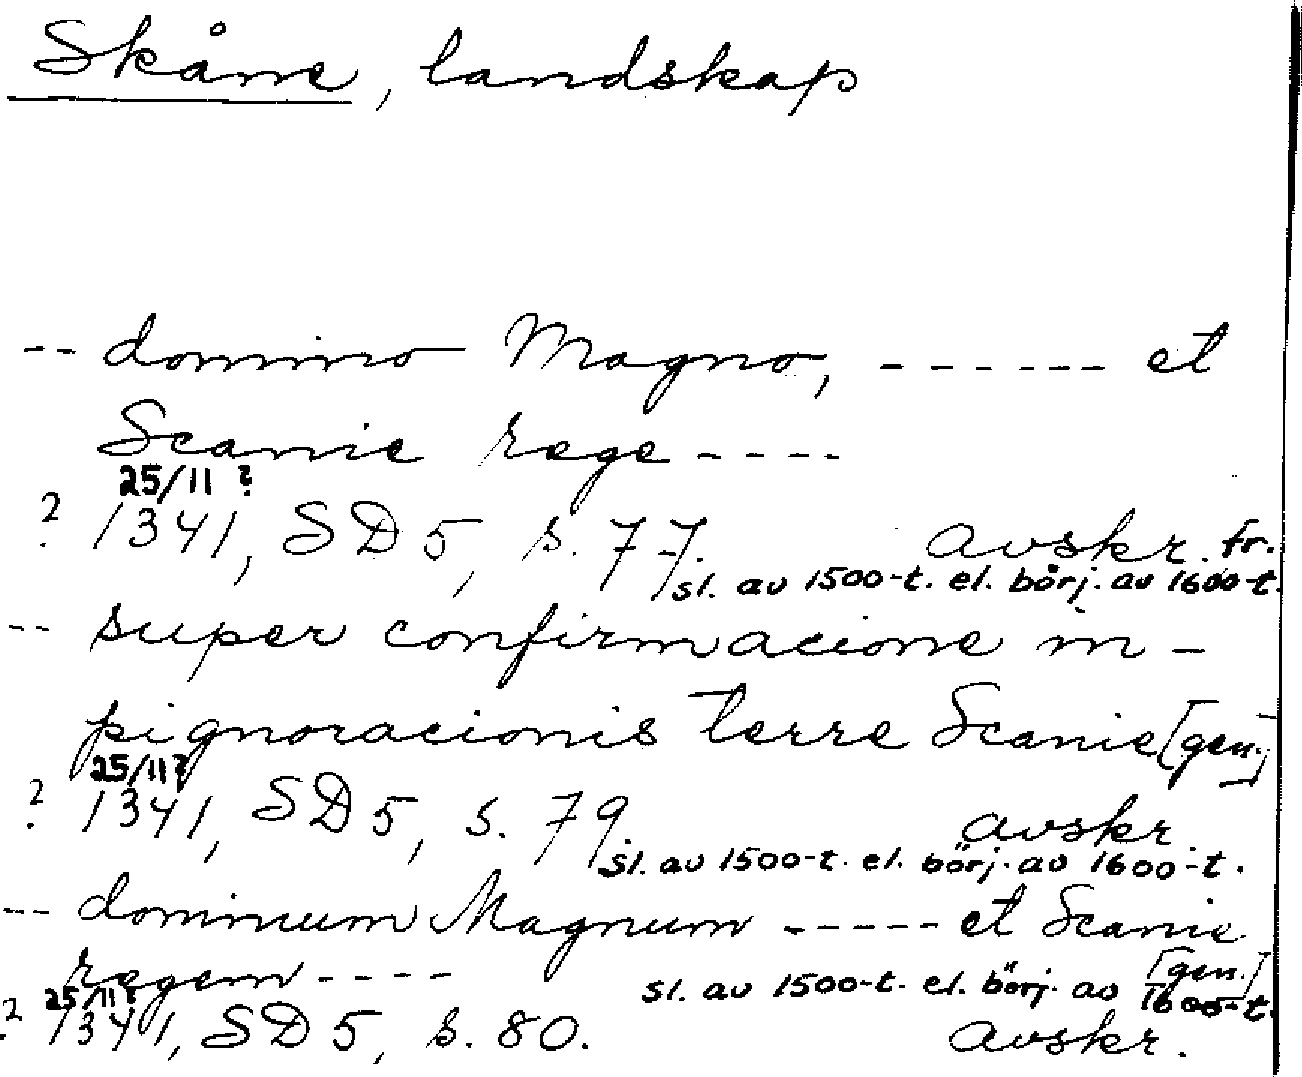 Skåne, landskap
-- domino Magno, ------ et
Scanie rege ----
25/11 ?
? 1341, SD 5, s. 77. avskr. fr.
sl. av 1500-t. el. börj. av 1600-t.
-- super confirmacione in-
pignoracionis terre Scanie [gen.]
25/11?
? 1341, SD 5, s. 79. avskr.
sl. av 1500-t. el. börj. av 1600-t.
-- dominum Magnum ----- et Scanie
regem ---- [gen.]
25/11? sl. av 1500-t. el. börj. av 1600-t.
? 1341, SD 5, s. 80. avskr.